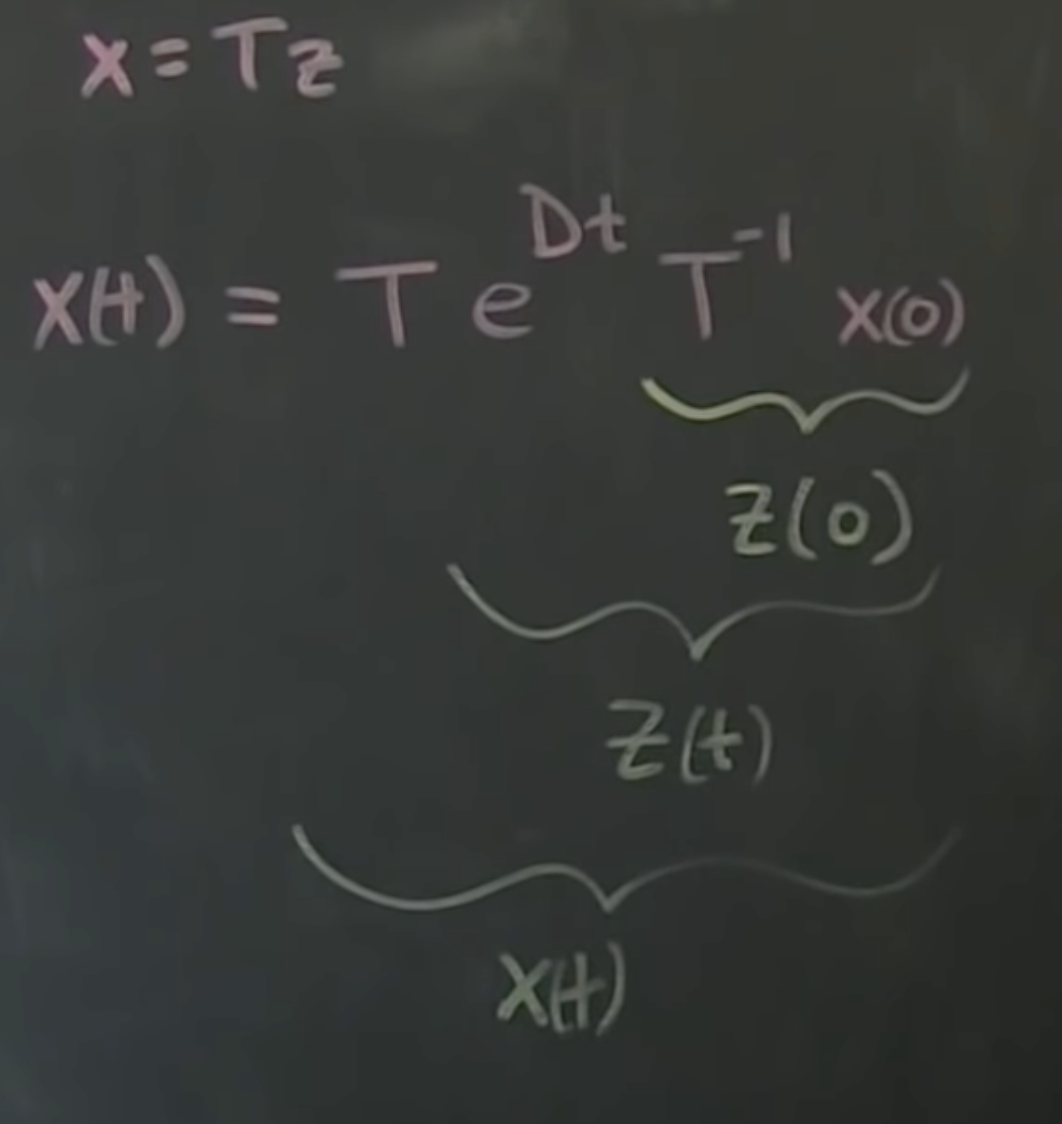 x = Tz
x(t) = T e^{Dt} T^{-1} x(0)
z(0)
z(t)
x(t)